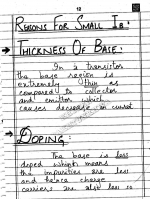 12
REASONS FOR SMALL IB:
→ THICKNESS OF BASE:
In a transistor
the base region is
extremely thin as
compared to collector
and emitter which
causes decrease in current
→ DOPING:
The base is less
doped which means
the impurities are less
and hence charge
carriers are also less so